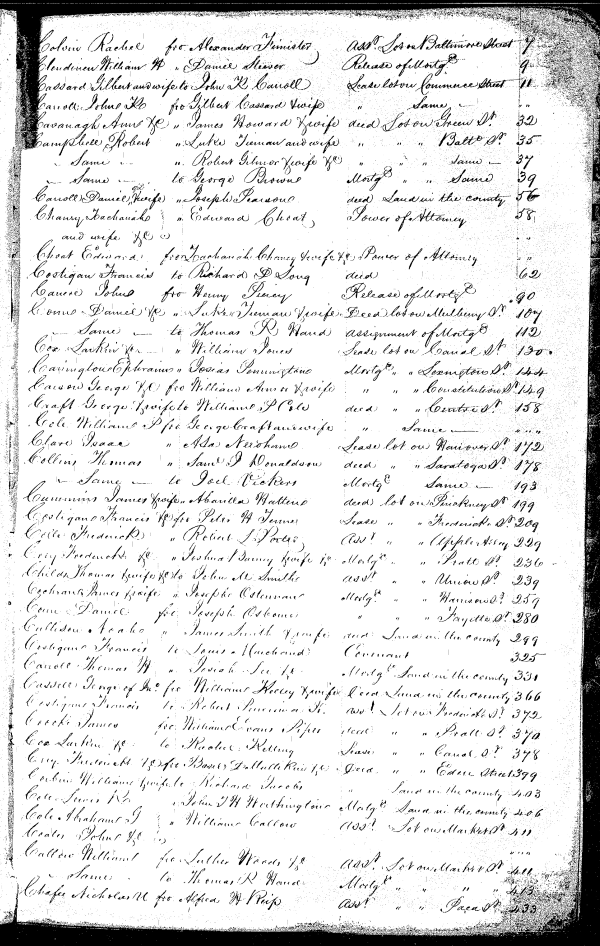 Colvin Rachel fro Alexander Fimister Asst. Lot on Baltimore Street 7
Clendinen William H " Daniel Stever Release of Mortgd 9
Cassard Gilbert and wife to John K Carroll Lease lot on Commerce Street 11
Carroll John K fro Gilbert Cassard & wife " Same — " "
Cavanagh Ann &c " James Howard & wife deed Lot on Green St. 32
Campbell Robert " Luke Tiernan and wife " " " Balto St. 35
" Same — " Robert Gilmor & wife &c " " " Same — 37
" Same — to George Brown Mortgd " " Same 39
Carroll Daniel & wife " Joseph Pearson deed Land in the county 56
Chaney Zachariah " Edward Choat, Power of Attorney 58
and wife &c " " "
Choat Edward fro Zachariah Chaney & wife &c Power of Attorney " "
Costigan Francis to Richard D Long deed 62
Cancer John fro Henry Release of Mortgd 90
Conn Daniel &c " Luke Tiernan & wife Deed lot on Mulberry St. 107
" Same — to Thomas R Hand assignment of Mortgd 112
Cox Larkin &c — " William Jones Lease lot on Canal St. 130
Covington Ephraim " Josias Pennington Mortgd " " Lexington St. 144
Carson George &c fro William & wife " " Constitution St. 149
Craft George & wife to William P Cole deed " " Centre St. 158
Cole William P fro George Craft and wife " Same — " "
Clare Isaac " Asa Needham Lease lot on Hanover St. 172
Collins Thomas " Saml J Donaldson deed " " Saratoga St. 178
" Same — to Joel Vickers Mortgd Same — 193
Cummins James & wife " Abarilla deed lot on Pinckney St. 199
Costigan Francis &c fro Peter H Lease " " Frederick St. 209
Frederick " Robert L Asst " " Apple Alley 229
Frederick &c " Joshua & wife &c Mortgd " " Pratt St. 236
Childs Thomas & wife &c to John M Smith Asst. " " Union St. 239
Cochran James & wife " Joseph Mortgd " " Harrison St. 259
Conn Daniel fro Joseph Osborne " " " Fayette St. 280
Cullison Noah " James Smith & wife deed Land in the county 299
Costigan Francis to Covenant 325
Carroll Thomas H " Josiah &c Mortgd Land in the county 331
Cassell George of Jno fro William & wife Deed Land in the county 366
Costigan Francis to Robert asst. Lot on Frederick St. 372
James fro William Evans Piper deed " " Pratt St. 370
Cox Larkin &c to Rachel Lease " " Canal St. 378
Frederick &c fro &c Deed " " Eden Street 399
Corbin William & wife to Richard Jacobs " Land in the county 403
Cole Lewis R " John T H Worthington Mortgd Land in the county 406
Cole Abraham J " William Callow Asst. Lot on Market St. 411
Coale John &c " " "
Callow William fro Luther Woods &c Asst. Lot on Market St. 411
" Same — to Thomas R Hand Mortgd " " " 413
Nicholas U fro Alfred H Reip Asst. " " Paca St. 433